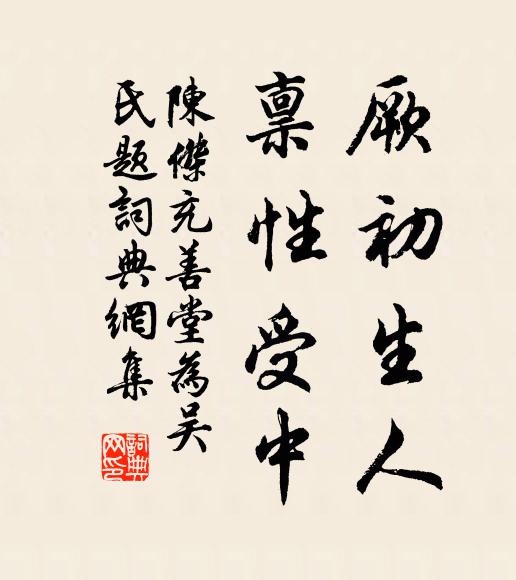 厥初生人
禀性受中
陳傑充善堂為吳
氏題詞典網集
詞典网印